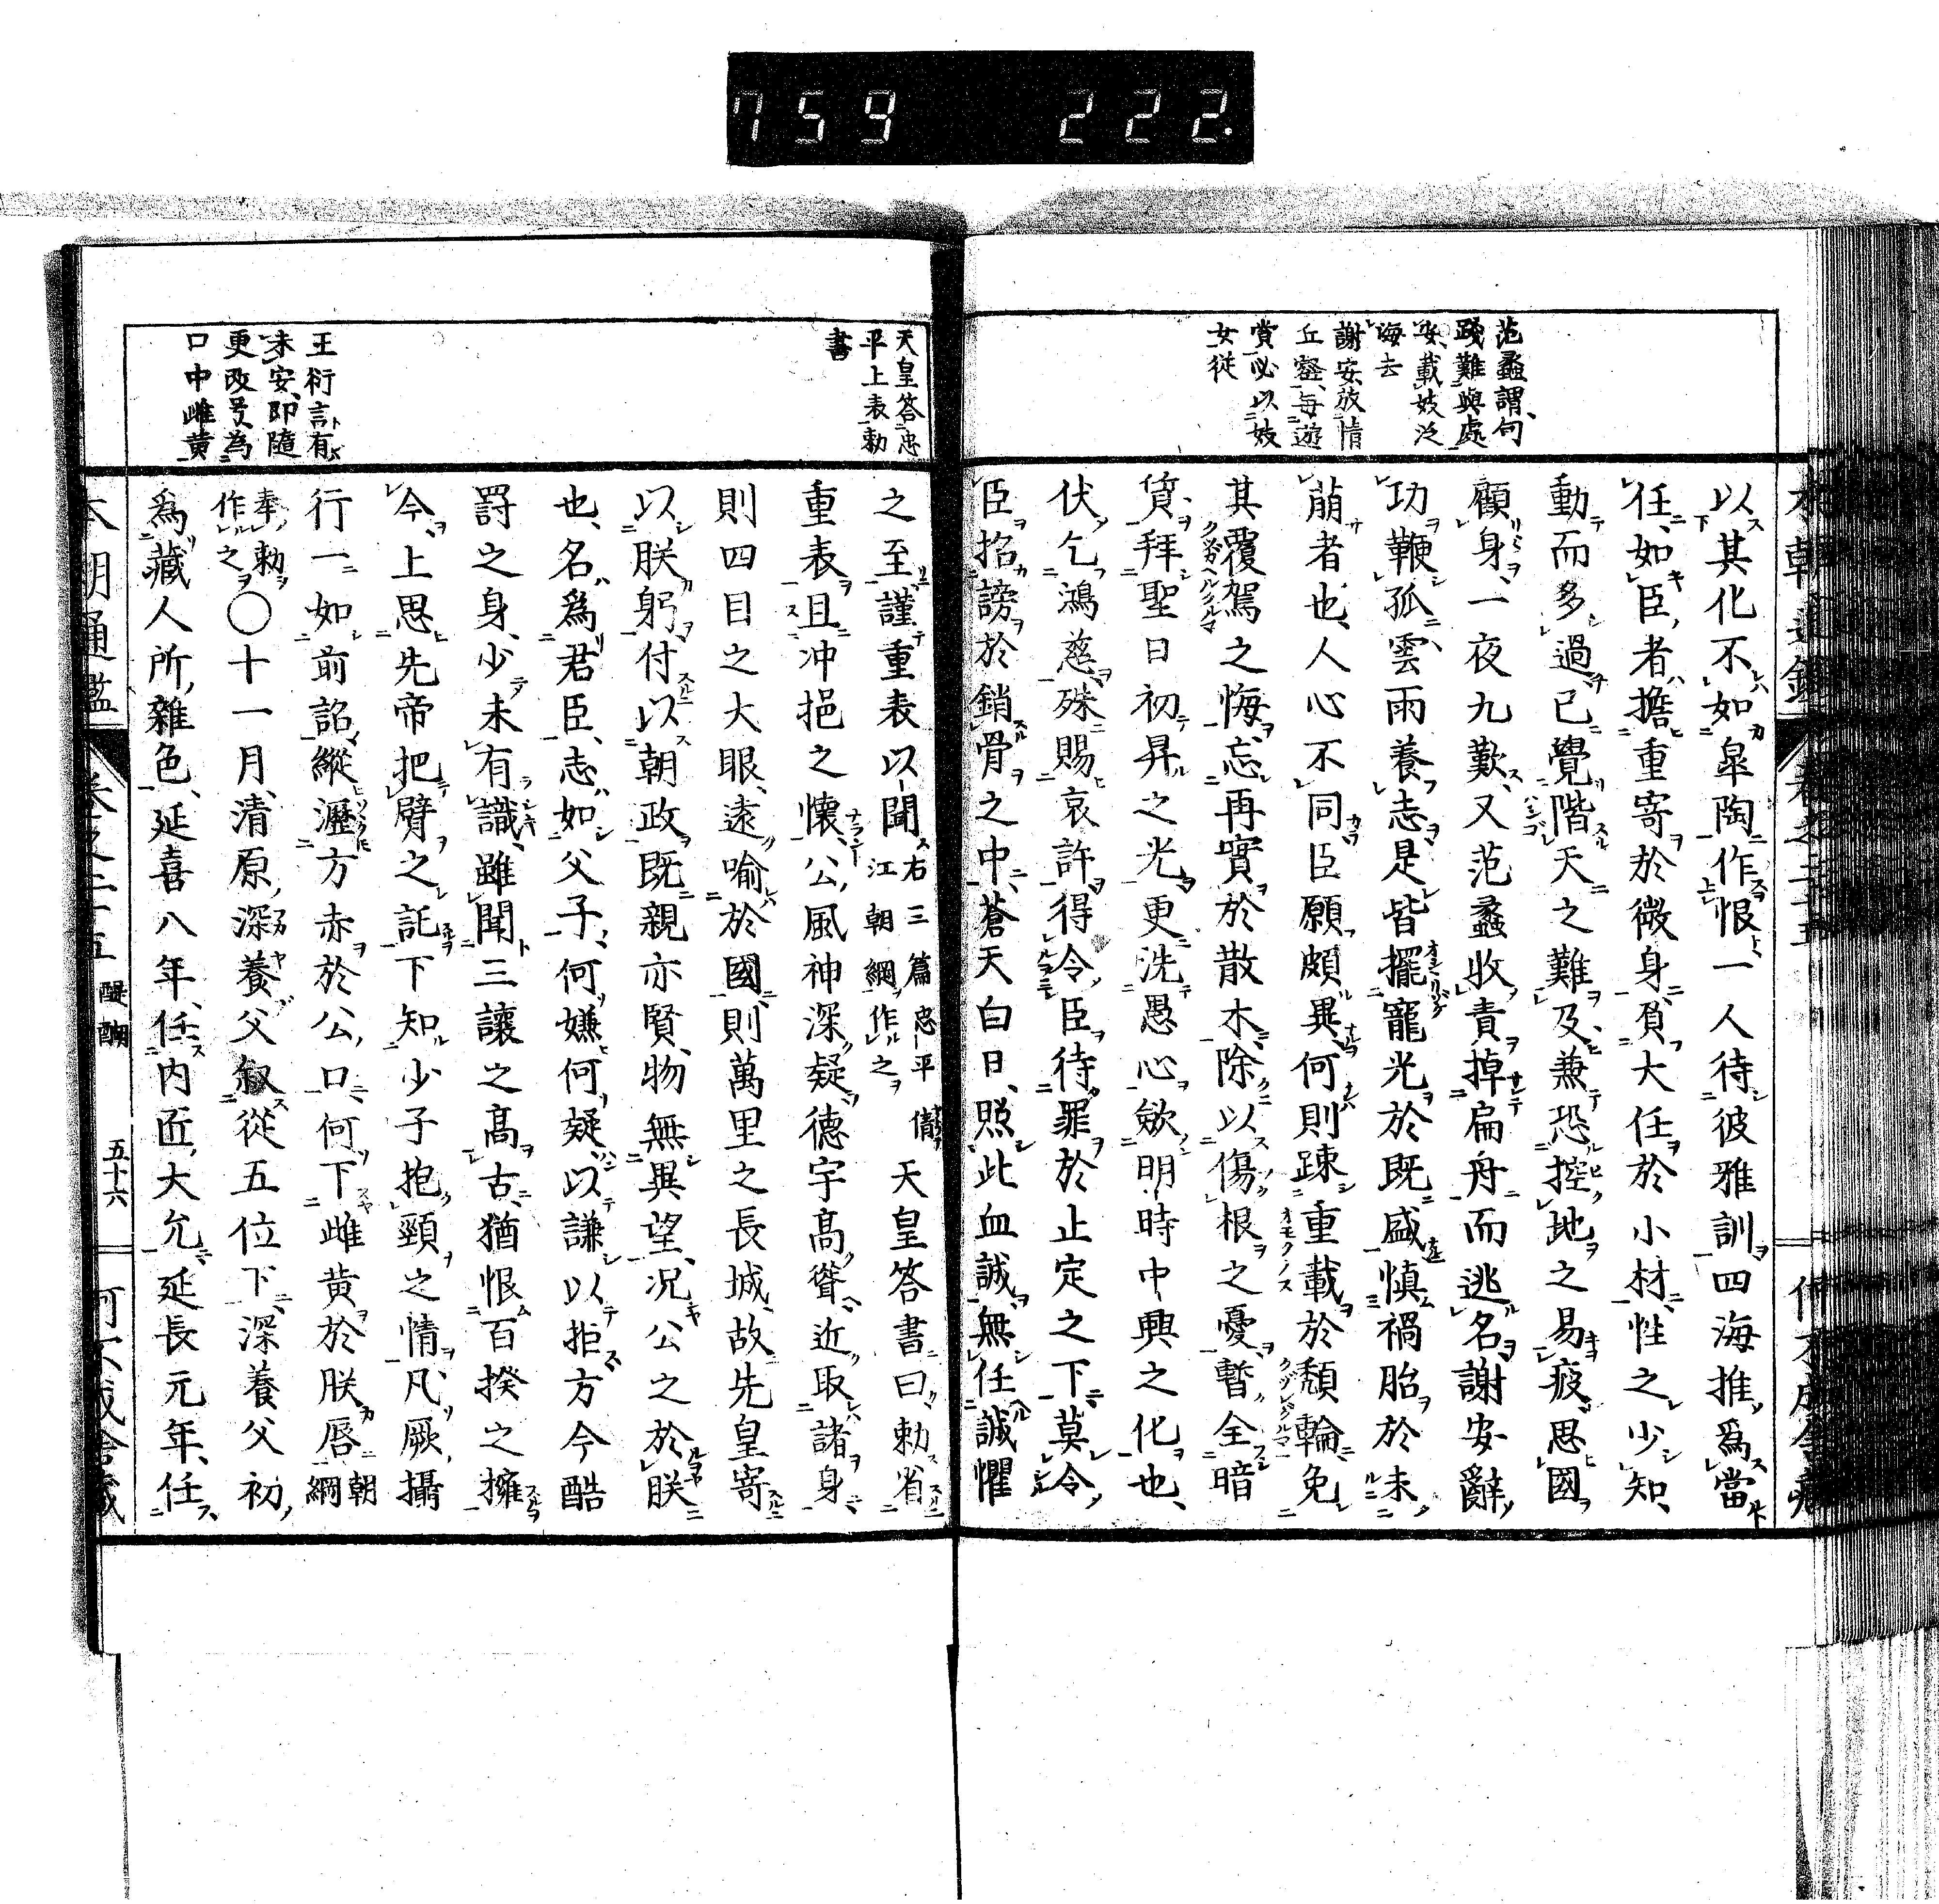 759 222.
范蠡謂句
踐難與處
安載妓泛
海去
謝安放情
丘壑每遊
賞必以妓
女從
以其化不如皐陶作恨一人待彼雅訓四海推爲當
任如臣者擔重寄於微身負大任於小材性之少知
動而多過已覺階天之難及兼恐控地之易疲思國
顧身一夜九歎又范蠡收責掉扁舟而逃名謝安辭
功鞭孤雲雨養志是皆擺寵光於既盛愼禍胎於未
萠者也人心不同臣願頗異何則踈重載於頽輪免
其覆駕之悔忘再實於散木除以傷根之憂暫全暗
質拜聖日初昇之光更洗愚心歛明時中興之化也
伏乞鴻慈殊賜哀許得令臣待罪於止定之下莫令
臣招謗於銷骨之中蒼天白日照此血誠無任誠懼
天皇答忠
平上表勅
書
王衍言有
未安即隨
更改号爲
口中雌黄
之至謹重表以聞右三篇忠平倩江朝綱作之天皇答書曰勅省
重表且冲挹之懷公風神深凝德宇高聳近取諸身
則四目之大眼遠喻於國則萬里之長城故先皇寄
以朕躬付以朝政既親亦賢物無異望况公之於朕
也名爲君臣志如父子何嫌何疑以謙以拒方今酷
罸之身少未有識雖聞三讓之高古猶恨百揆之擁
今上思先帝把臂之託下知少子抱頸之情凡厥攝
行一如前詔縱瀝方赤於公口何下雌黄於朕唇朝綱
奉勅作之○十一月清原深養父叙從五位下深養父初
爲藏人所雜色延喜八年任内匠大允延長元年任
本朝通鑑 卷之二十五 醍醐 五十六